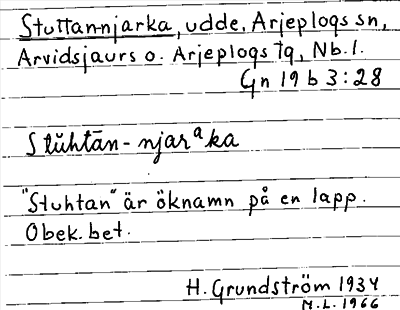 Stuttan-njarka, udde, Arjeplogs sn,
Arvidsjaurs o. Arjeplogs tg, Nb. l.
Gn 19 b 3:28
Stŭhtān-njarᵃka
"Stuhtan" är öknamn på en lapp.
Obek. bet.
H. Grundström 1934
M.L. 1966